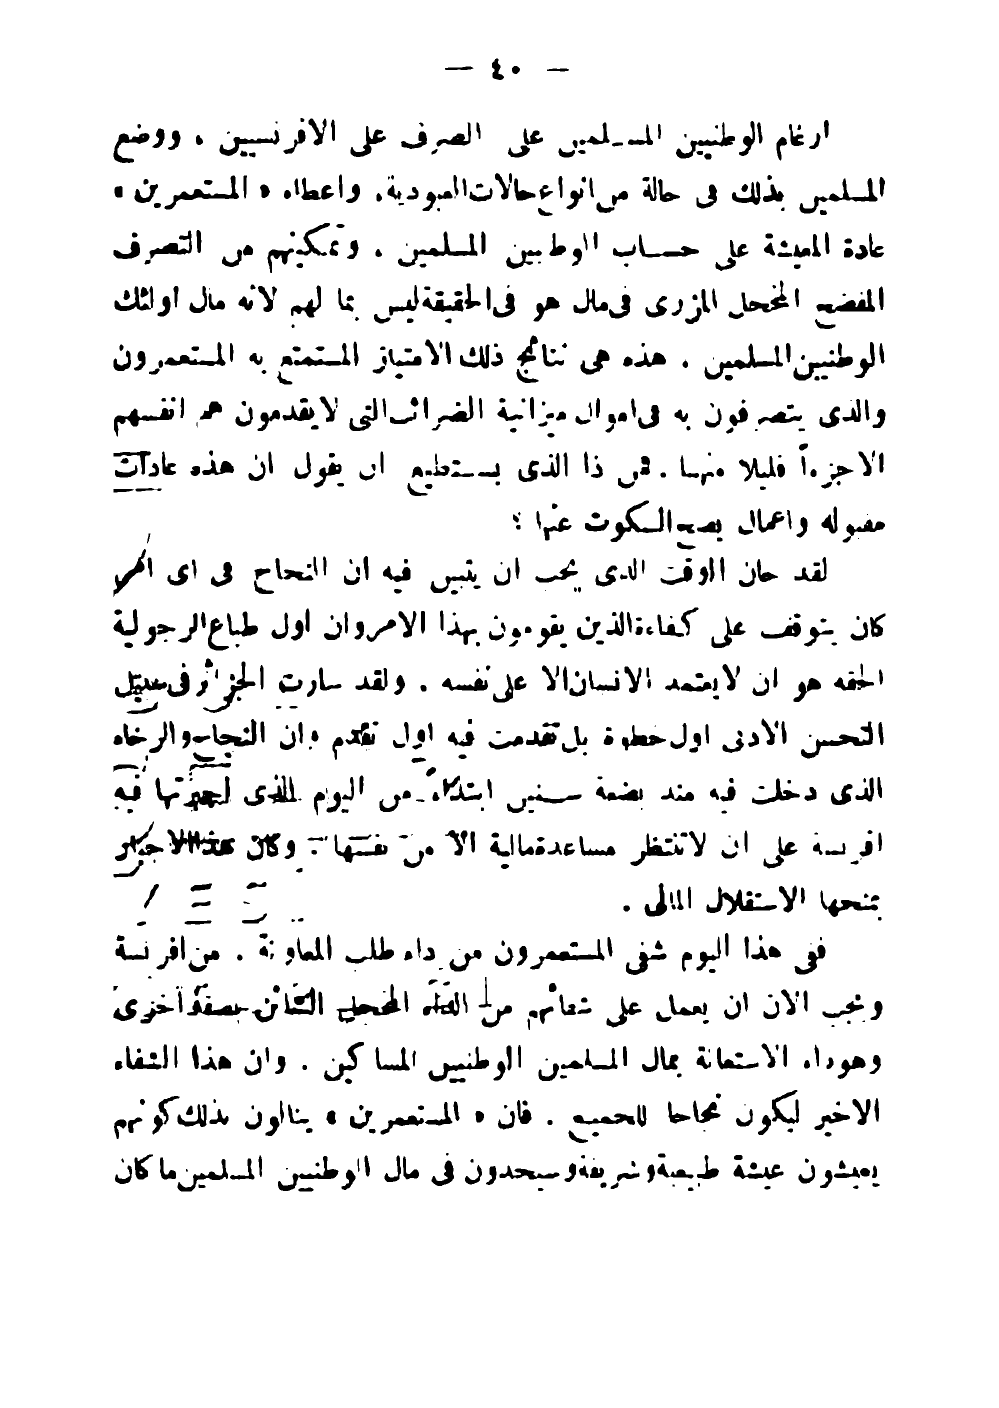 — ٤٠ —
ارغام الوطنيين المسلمين على الصرف على الافرنسيين ، ووضع
المسلمين بذلك فى حالة من انواع حالات العبودية، واعطاء « المستعمرين »
عادة المعيشة على حساب الوطنيين المسلمين ، وتمكينهم من التصرف
المفضح المخجل المزرى فى مال هو فى الحقيقة ليس بما لهم لانه مال اولئك
الوطنيين المسلمين . هذه هى نتائج ذلك الامتياز المستمتع به المستعمرون
والذى يتصرفون به فى اموال ميزانية الضرائب التى لا يقدمون هم انفسهم
الاجزءاً قليلا منها . فمن ذا الذى يستطيع ان يقول ان هذه عادات
مقبوله واعمال يصح السكوت عنها ؟
لقد حان الوقت الذى يجب ان يتبين فيه ان النجاح فى اى امر
كان يتوقف على كفاءة الذين يقومون بهذا الامر وان اول طباع الرجولية
الحقه هو ان لا يعتمد الانسان الا على نفسه . ولقد سارت الجزائر فى سبيل
التحسن الادبى اول خطوة بل تقدمت فيه اول تقدم وان النجاح والرخاء
الذى دخلت فيه منذ بضعة سنين ابتداء من اليوم الذى اجبرتها فيه
افرنسة على ان لا تنتظر مساعدة مالية الا من نفسها . وكان هذا الاجبار
بمنحها الاستقلال المالى .
ففى هذا اليوم شفى المستعمرون من داء طلب المعاونة . من افرنسة
ويجب الان ان يعمل على شفائهم من الداء المخجل الشائن بصفة اخرى
وهو داء الاستعانة بمال المسلمين الوطنيين المساكين . وان هذا الشفاء
الاخير ليكون نجاحا للجميع . فان « المستعمرين » ينالون بذلك كونهم
يعيشون عيشة طبيعية وشريفة وسيجدون فى مال الوطنيين المسلمين ما كان